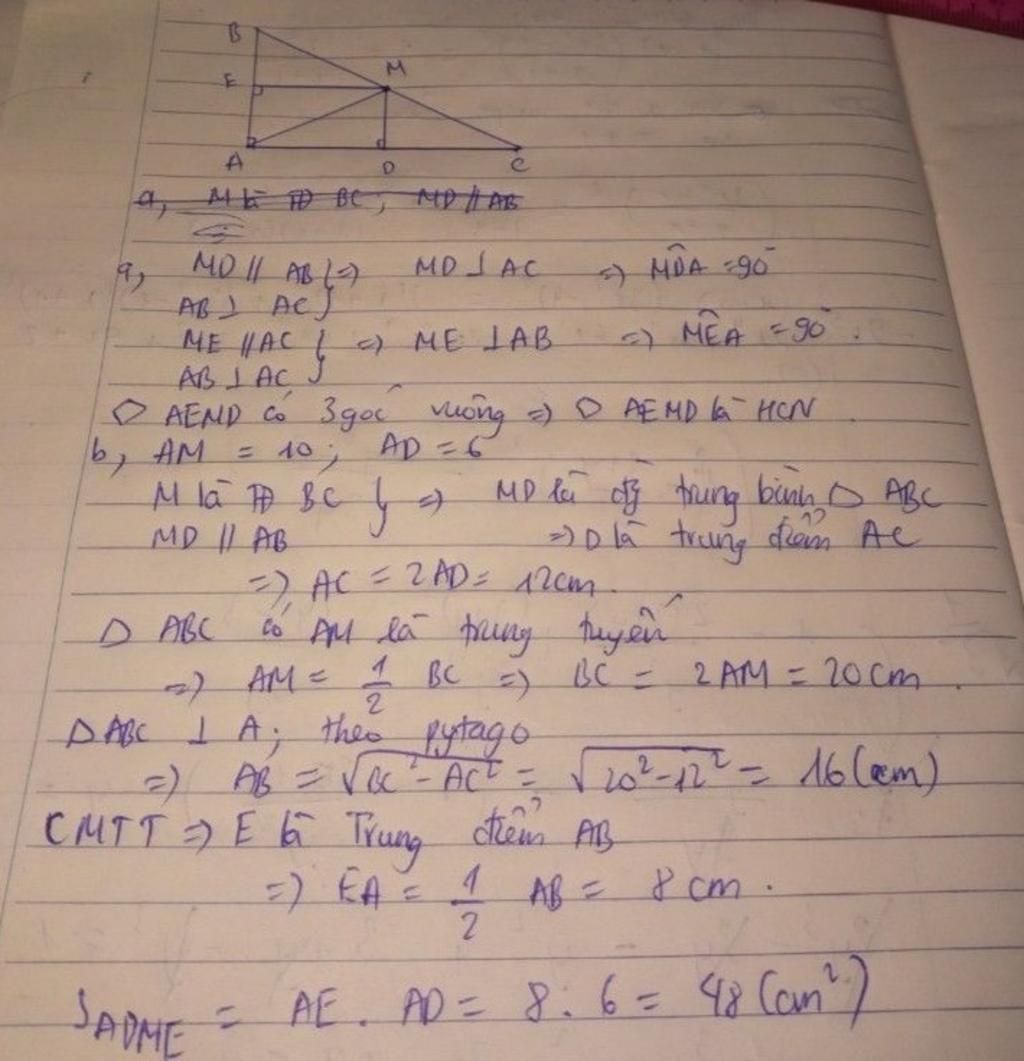 B
E M
A D C
a, M là TĐ BC; MD // AB
a, MD // AB } => MD ⊥ AC => MD̂A = 90°
AB ⊥ AC
ME // AC } => ME ⊥ AB => MÊA = 90°.
AB ⊥ AC
▱ AEMD có 3 góc vuông => ▱ AEMD là HCN.
b, AM = 10; AD = 6
M là TĐ BC } => MD là đg trung bình △ ABC
MD // AB => D là trung điểm AC
=> AC = 2AD = 12cm.
△ ABC có AM là trung tuyến
=> AM = 1/2 BC => BC = 2AM = 20cm.
△ABC ⊥ A; theo pytago
=> AB = √BC² - AC² = √20² - 12² = 16 (cm)
CMTT => E là Trung điểm AB
=> EA = 1/2 AB = 8 cm.
S_ADME = AE. AD = 8 . 6 = 48 (cm²)